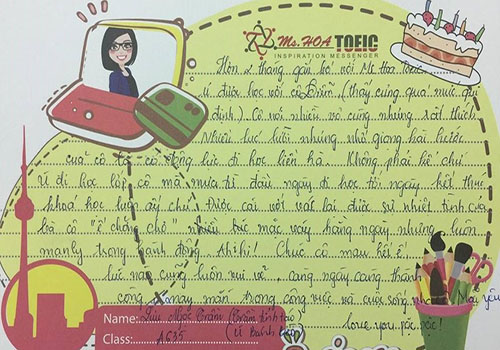 Ms. HOA TOEIC
INSPIRATION MESSENGER
Hơn 2 tháng gắn bó với Ms Hoa Toeic
ú được học với cô Trần (thầy cũng quá mức quy
định). Cô nói nhiều vô cùng nhưng rất thích
Nhiều lúc lười nhưng nhờ giọng hài hước
của cô là có động lực đi học liền hà. Không phải hề chứ
ú đi học lớp cô mà mười từ đầu ngày đi học tới ngày kết thúc
khoá học luôn ấy chứ. Được cái vớt vát lại được sự nhiệt tình của
bà cô "ế chỏng chơ" nhiều bức xúc vậy hằng ngày nhưng luôn
manly trong hành động. Ahihi! Chúc cô mau hết ế
lúc nào cũng luôn vui vẻ càng ngày càng thành
công, may mắn trong công việc và cuộc sống nha. Mãi yêu
love you
Name: Trâm
Class: A635